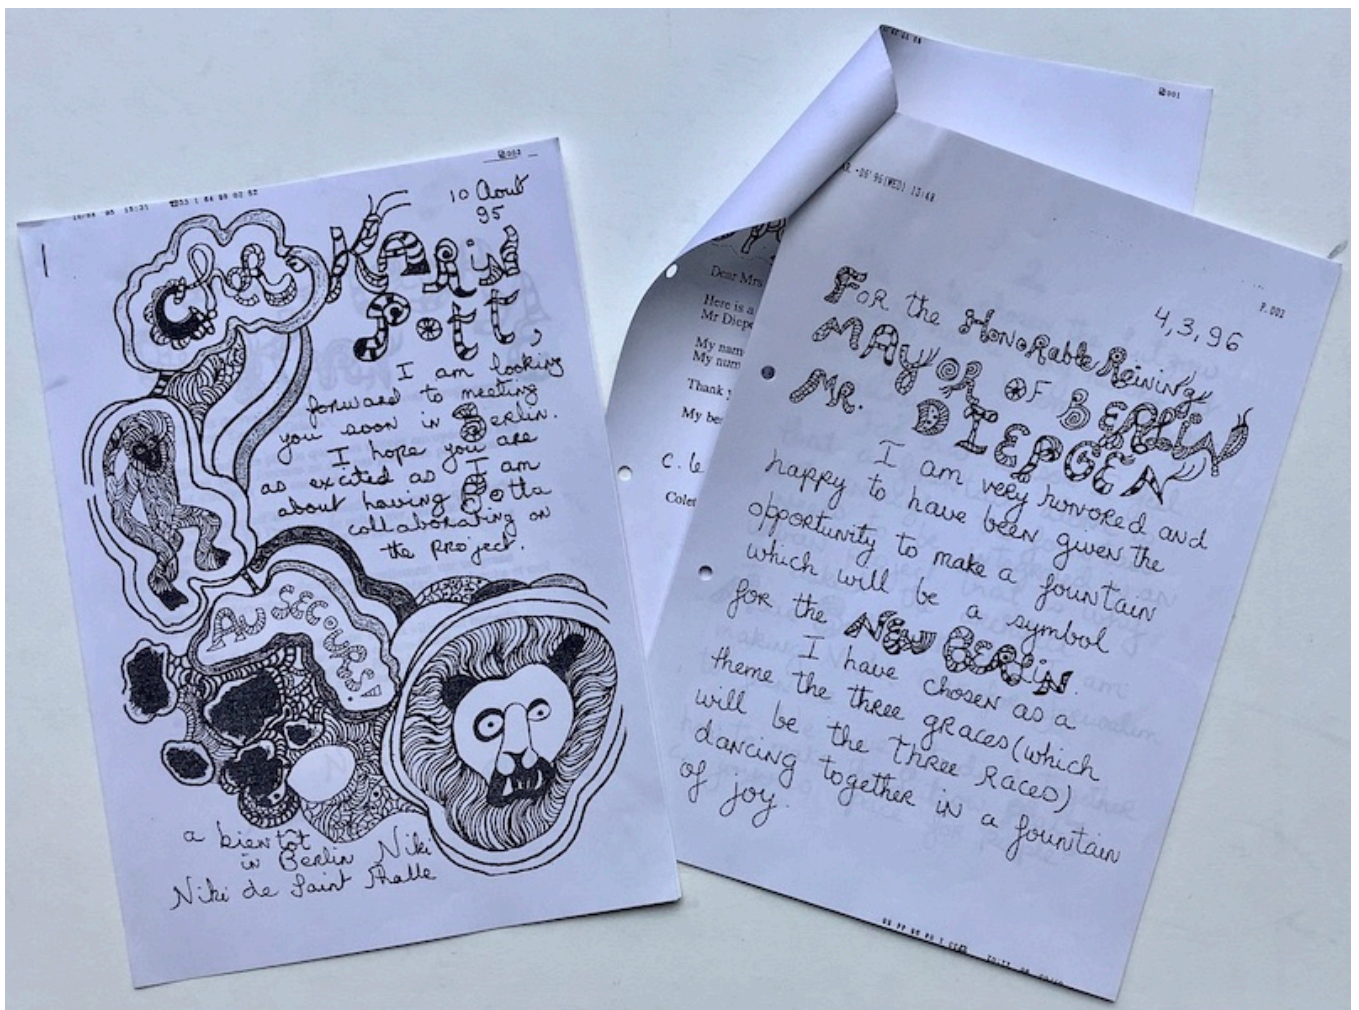 10 Aout
95
Cher KARIN
Pott,
I am looking
forward to meeting
you soon in Berlin.
I hope you are
as excited as I am
about having Botta
collaborating on
the project.
AU SECOURS!
a bientôt
in Berlin Niki
Niki de Saint Phalle
001
Dear Mrs
Here is a
Mr Diep
My nam
My num
Thank y
My be
c. le
Colet
'96(WED) 10:48
P.002
4,3,96
FOR the HonoRable Reining
MAYOR OF BERLIN
MR. DIEPGEN
I am very honored and
happy to have been given the
opportunity to make a fountain
which will be a symbol
for the NEW BERLIN.
I have chosen as a
theme the three graces (which
will be the three races)
dancing together in a fountain
of joy.